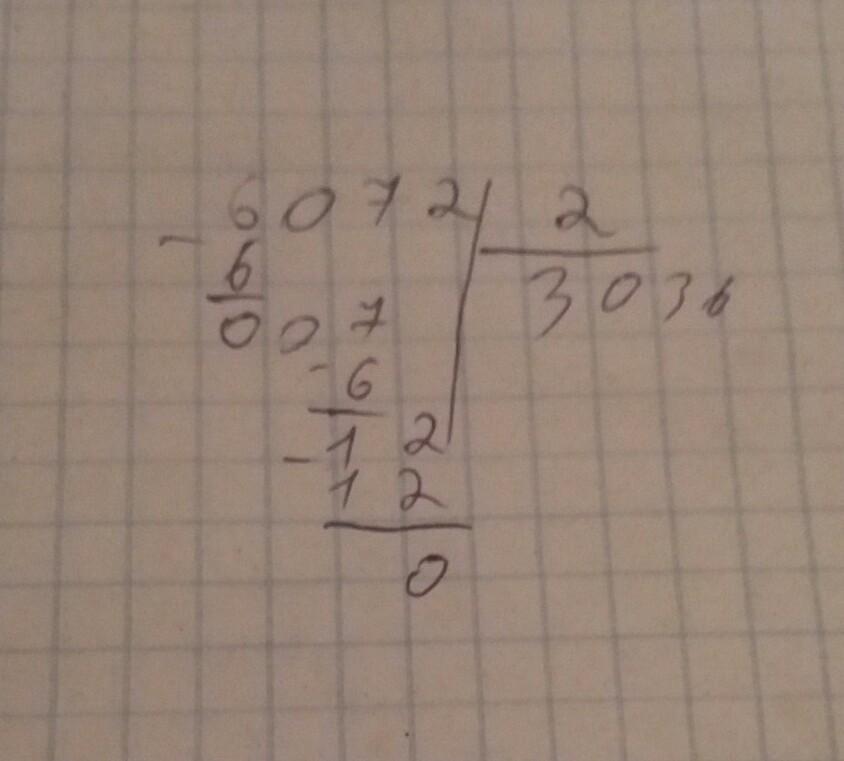 - 6 0 7 2 | 2
6 3 0 3 6
0 0 7
- 6
- 1 2
1 2
0